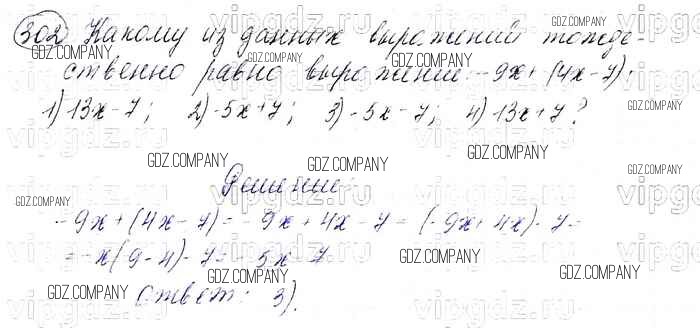 302 Какому из данных выражений тожде-
ственно равно выражение: -9x+(4x-7):
1) 13x-7; 2) -5x+7; 3) -5x-7; 4) 13x+7?
Решение:
-9x+(4x-7)=-9x+4x-7=(-9x+4x)-7=
=-x(9-4)-7=-5x-7
Ответ: 3).
GDZ.COMPANY
vipgdz.ru